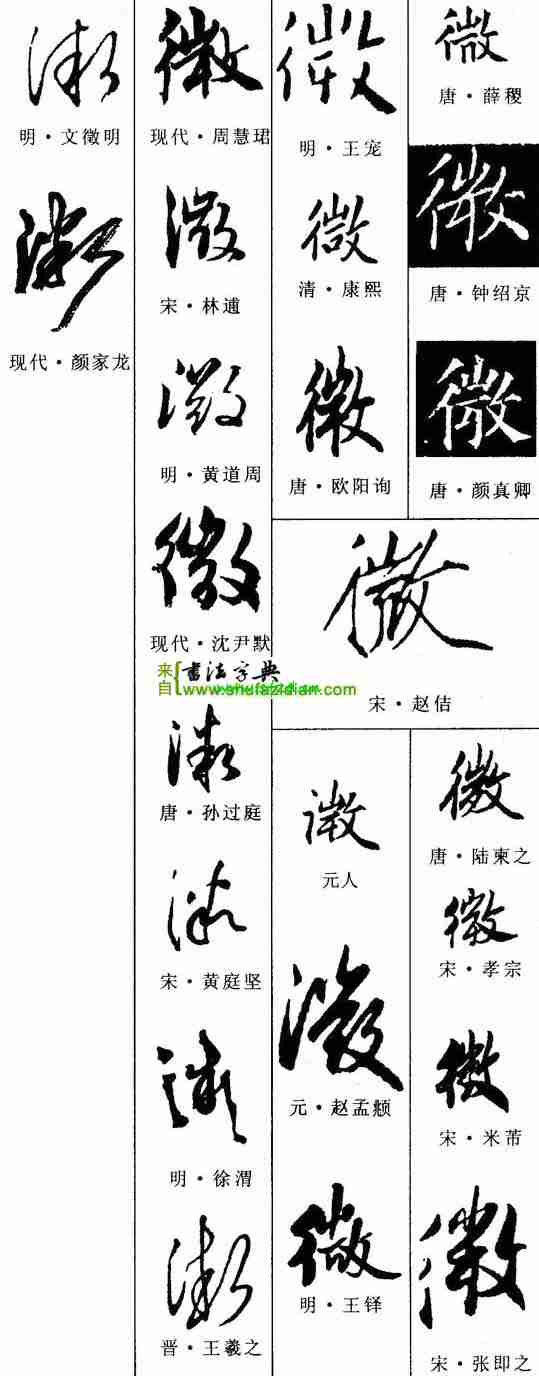 微
唐·薛稷
微
唐·钟绍京
微
唐·颜真卿
微
明·王宠
微
清·康熙
微
唐·欧阳询
微
宋·赵佶
微
唐·陆柬之
微
宋·孝宗
微
宋·米芾
微
宋·张即之
微
元人
微
元·赵孟頫
微
明·王铎
微
现代·周慧珺
微
宋·林逋
微
明·黄道周
微
现代·沈尹默
来自 书法字典
www.shufazidian.com
微
唐·孙过庭
微
宋·黄庭坚
微
明·徐渭
微
晋·王羲之
微
明·文徵明
微
现代·颜家龙